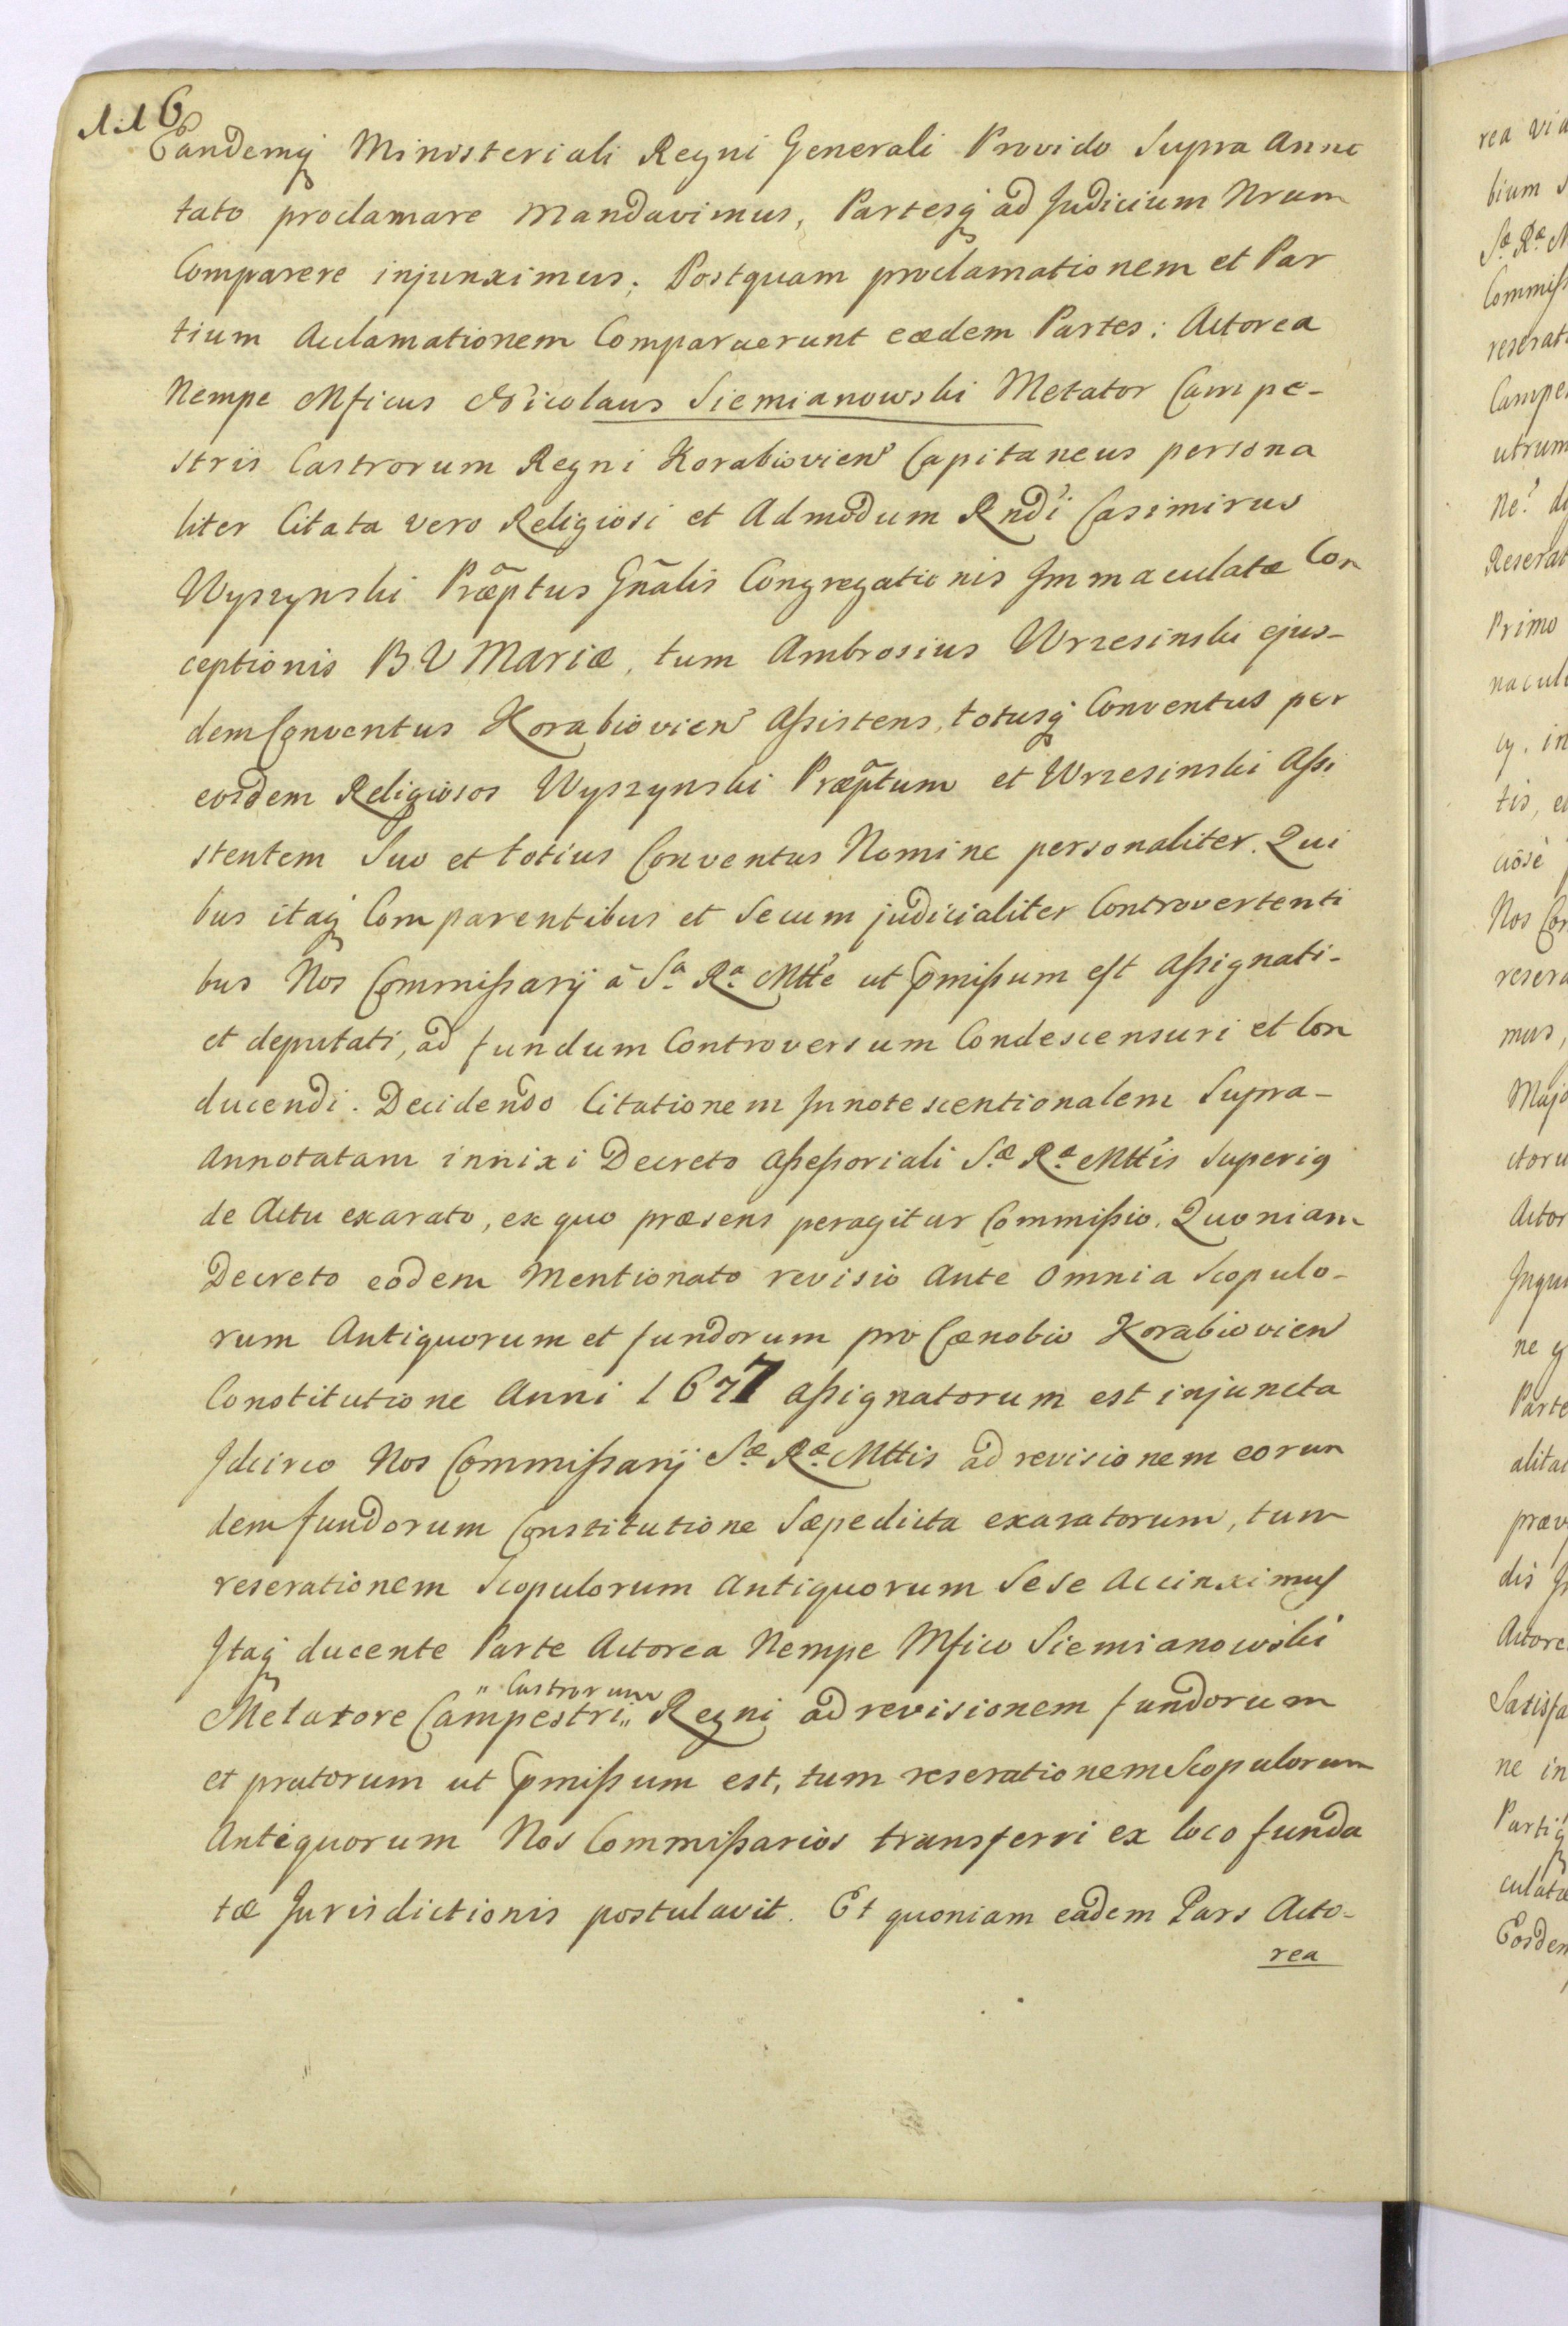 116
Eandemq Ministeriali Regni Generali Provido Supra Anno
tato proclamare Mandavimus, Partesq ad Judicium Nrum
Comparere injunximus; Postquam proclamationem et Par
tium Acclamationem Comparuerunt eædem Partes: Actorea
Nempe Mficus Nicolaus Siemianowski Metator Campe-
stris Castrorum Regni Korabiovien Capitaneus persona
liter Citata vero Religiosi et Admodum Rndi Casimirus
Wyszynski Præptus Gnãlis Congregationis Immaculatæ Con
ceptionis B V Mariæ, tum Ambrosius Wrzesinski ejus-
dem Conventus Korabiovien Assistens, totusq Conventus per
eosdem Religiosos Wyszynski Præptum et Wrzesinski Assi
stentem Suo et totius Conventus Nomine personaliter. Qui
bus itaq Comparentibus et Secum judicialiter Controvertenti
bus Nos Commissarij à Sa Ra Mtte ut pmissum est Assignati-
et deputati, ad fundum Controversum Condescensuri et Con
ducendi. Decidendo Citationem Innotescentionalem Supra-
Annotatam innixi Decreto Assessoriali Sæ Ræ Mttis Superig
de Actu exarato, ex quo præsens peragitur Commissio. Quoniam
Decreto eodem Mentionato revisio Ante Omnia Scopulo-
rum Antiquorum et fundorum pro Cænobio Korabiovien
Constitutione Anni 1677 Assignatorum est injuncta
Idcirco Nos Commissarij Sæ Ræ Mttis ad revisionem eorun
dem fundorum Constitutione Sæpedicta exaratorum, tum
reserationem Scopulorum Antiquorum Sese Accinximus
Itaq ducente Parte Actorea Nempe Mfico Siemianowski
" Castrorum
Metatore Campestri " Regni ad revisionem fundorum
et pratorum ut pmissum est, tum reserationem Scopulorum
Antiquorum Nos Commissarios transferri ex loco funda
tæ Jurisdictionis postulavit. Et quoniam eadem Pars Acto-
rea
rea via
bium
Sæ Ræ M
Commiss
reserat
Campe
utrum
Reserat
Primo
nacul
cy. in
tis, e
Nos Con
resera
mus,
Majo
ctoru
Actor
Inqui
ne
Parte
alita
præv
dis
Actore
Satisfa
ne in
Parti
culatæ
Eosdem